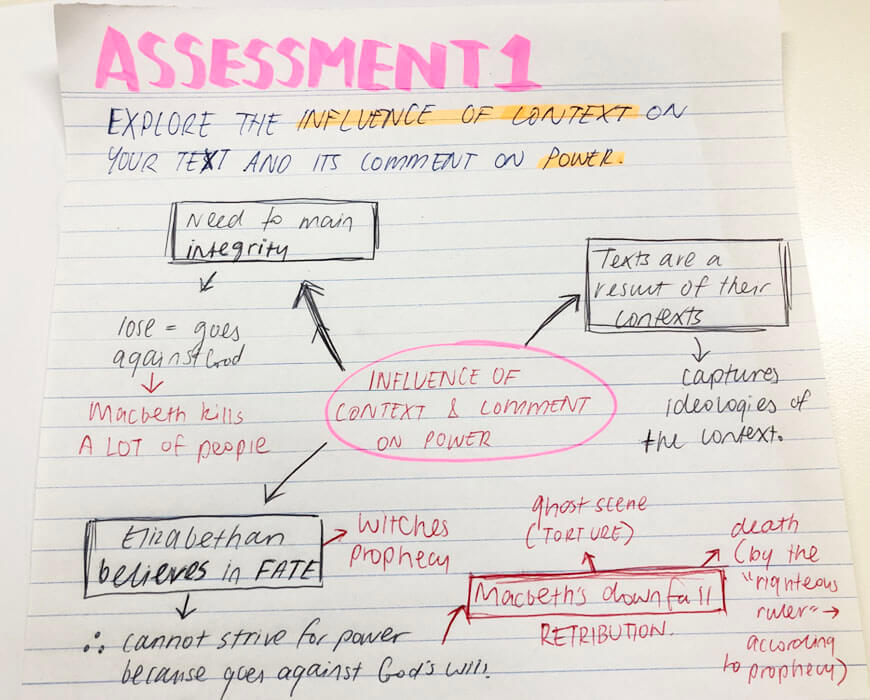 ASSESSMENT 1
EXPLORE THE INFLUENCE OF CONTEXT ON
YOUR TEXT AND ITS COMMENT ON POWER.
Need to main
integrity
lose = goes
against God
Macbeth kills
A LOT of people
Texts are a
result of their
contexts
captures
ideologies of
the context.
INFLUENCE OF
CONTEXT & COMMENT
ON POWER
Elizabethan
believes in FATE
witches
prophecy
∴ cannot strive for power
because goes against God's will.
Macbeth's downfall
RETRIBUTION.
ghost scene
(TORTURE)
death
(by the
"righteous
ruler" →
according
to prophecy)